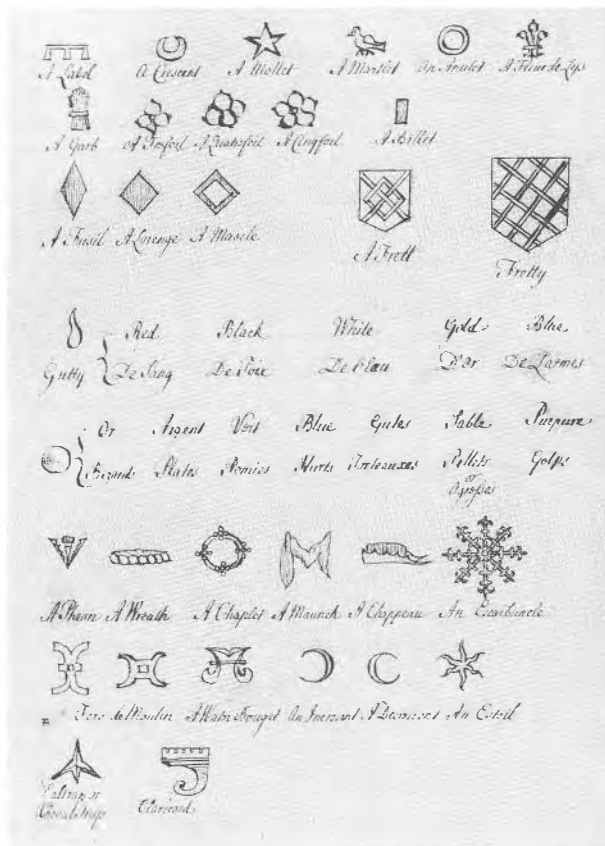 A Label A Crescent A Mollet A Martlet An Anulet A Fleur de Lys
A Garb A Trefoil A Quatrefoil A Cinqfoil A Billet
A Fusil A Lozenge A Mascle A Frett Fretty
Red Black White Gold Blue
Gutty De Sang De Poix De l'Eau D'or De Larmes
Or Argent Vert Blue Gules Sable Purpure
Bezants Plates Pomies Hurts Torteauxes Pellets Golps
or
Ogresses
A Pheon A Wreath A Chaplet A Maunch A Chappeau An Escarbuncle
Fers de Moulin A Water Bouget An Increscent A Decrescent An Estoil
Caltrap or
Claricord